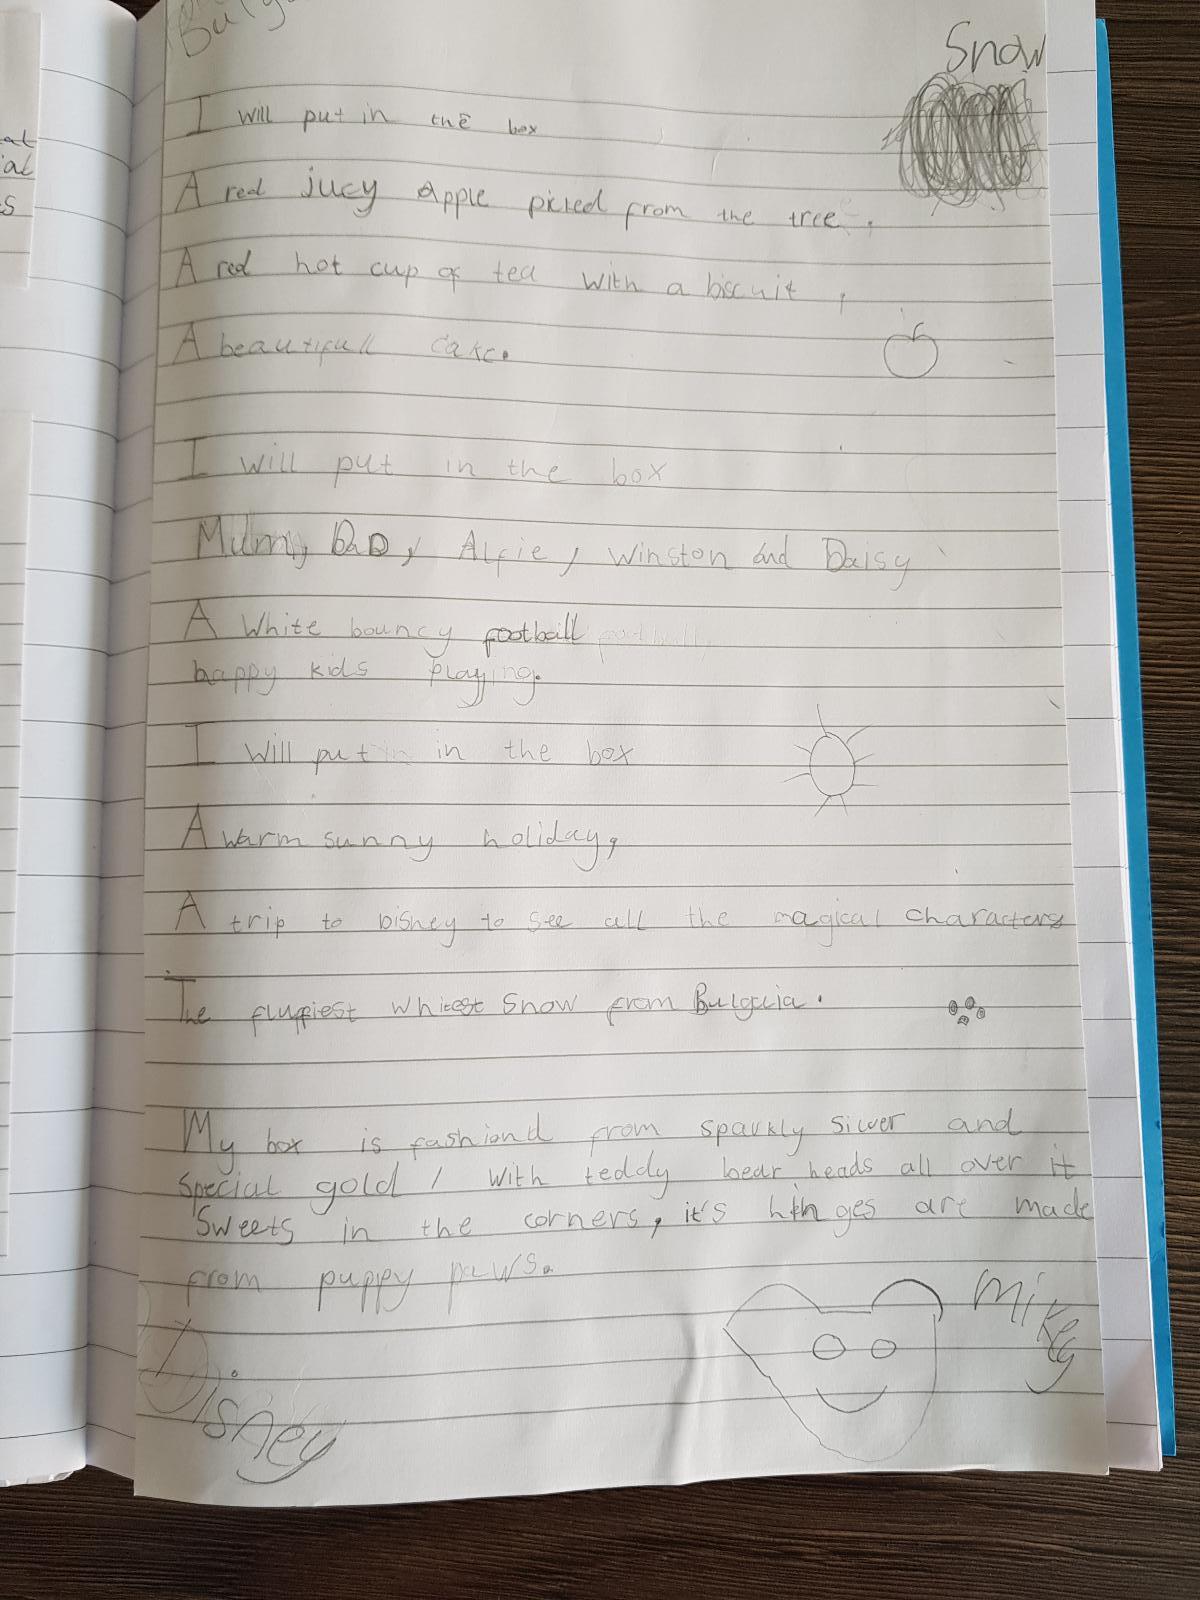 Snow
I will put in the box
A red jucy Apple picked from the tree,
A red hot cup of tea with a biscuit,
A beautifull cake.
I will put in the box
Mum, DaD, Alfie, Winston and Daisy
A White bouncy football football,
happy kids playing.
I will put in in the box
A warm sunny holiday,
A trip to Disney to see all the magical characters
The fluffiest whitest Snow from Bulgaia.
My box is fashiond from sparkly silver and
special gold, with teddy bear heads all over it
Sweets in the corners, it's hinges are made
from puppy paws.
Mikey
Disney